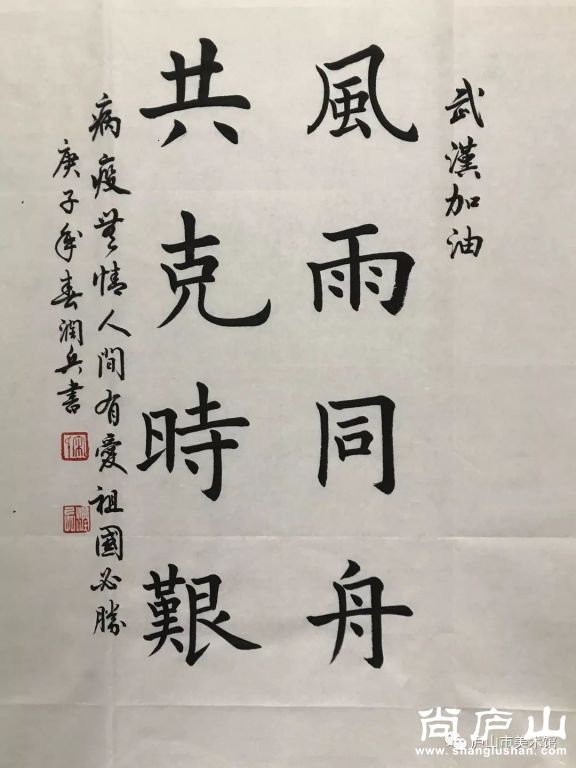 武漢加油
風雨同舟
共克時艱
病疫無情人間有愛祖國必勝
庚子年春潤兵書
尚庐山
庐山市美术馆
www.shanglushan.com